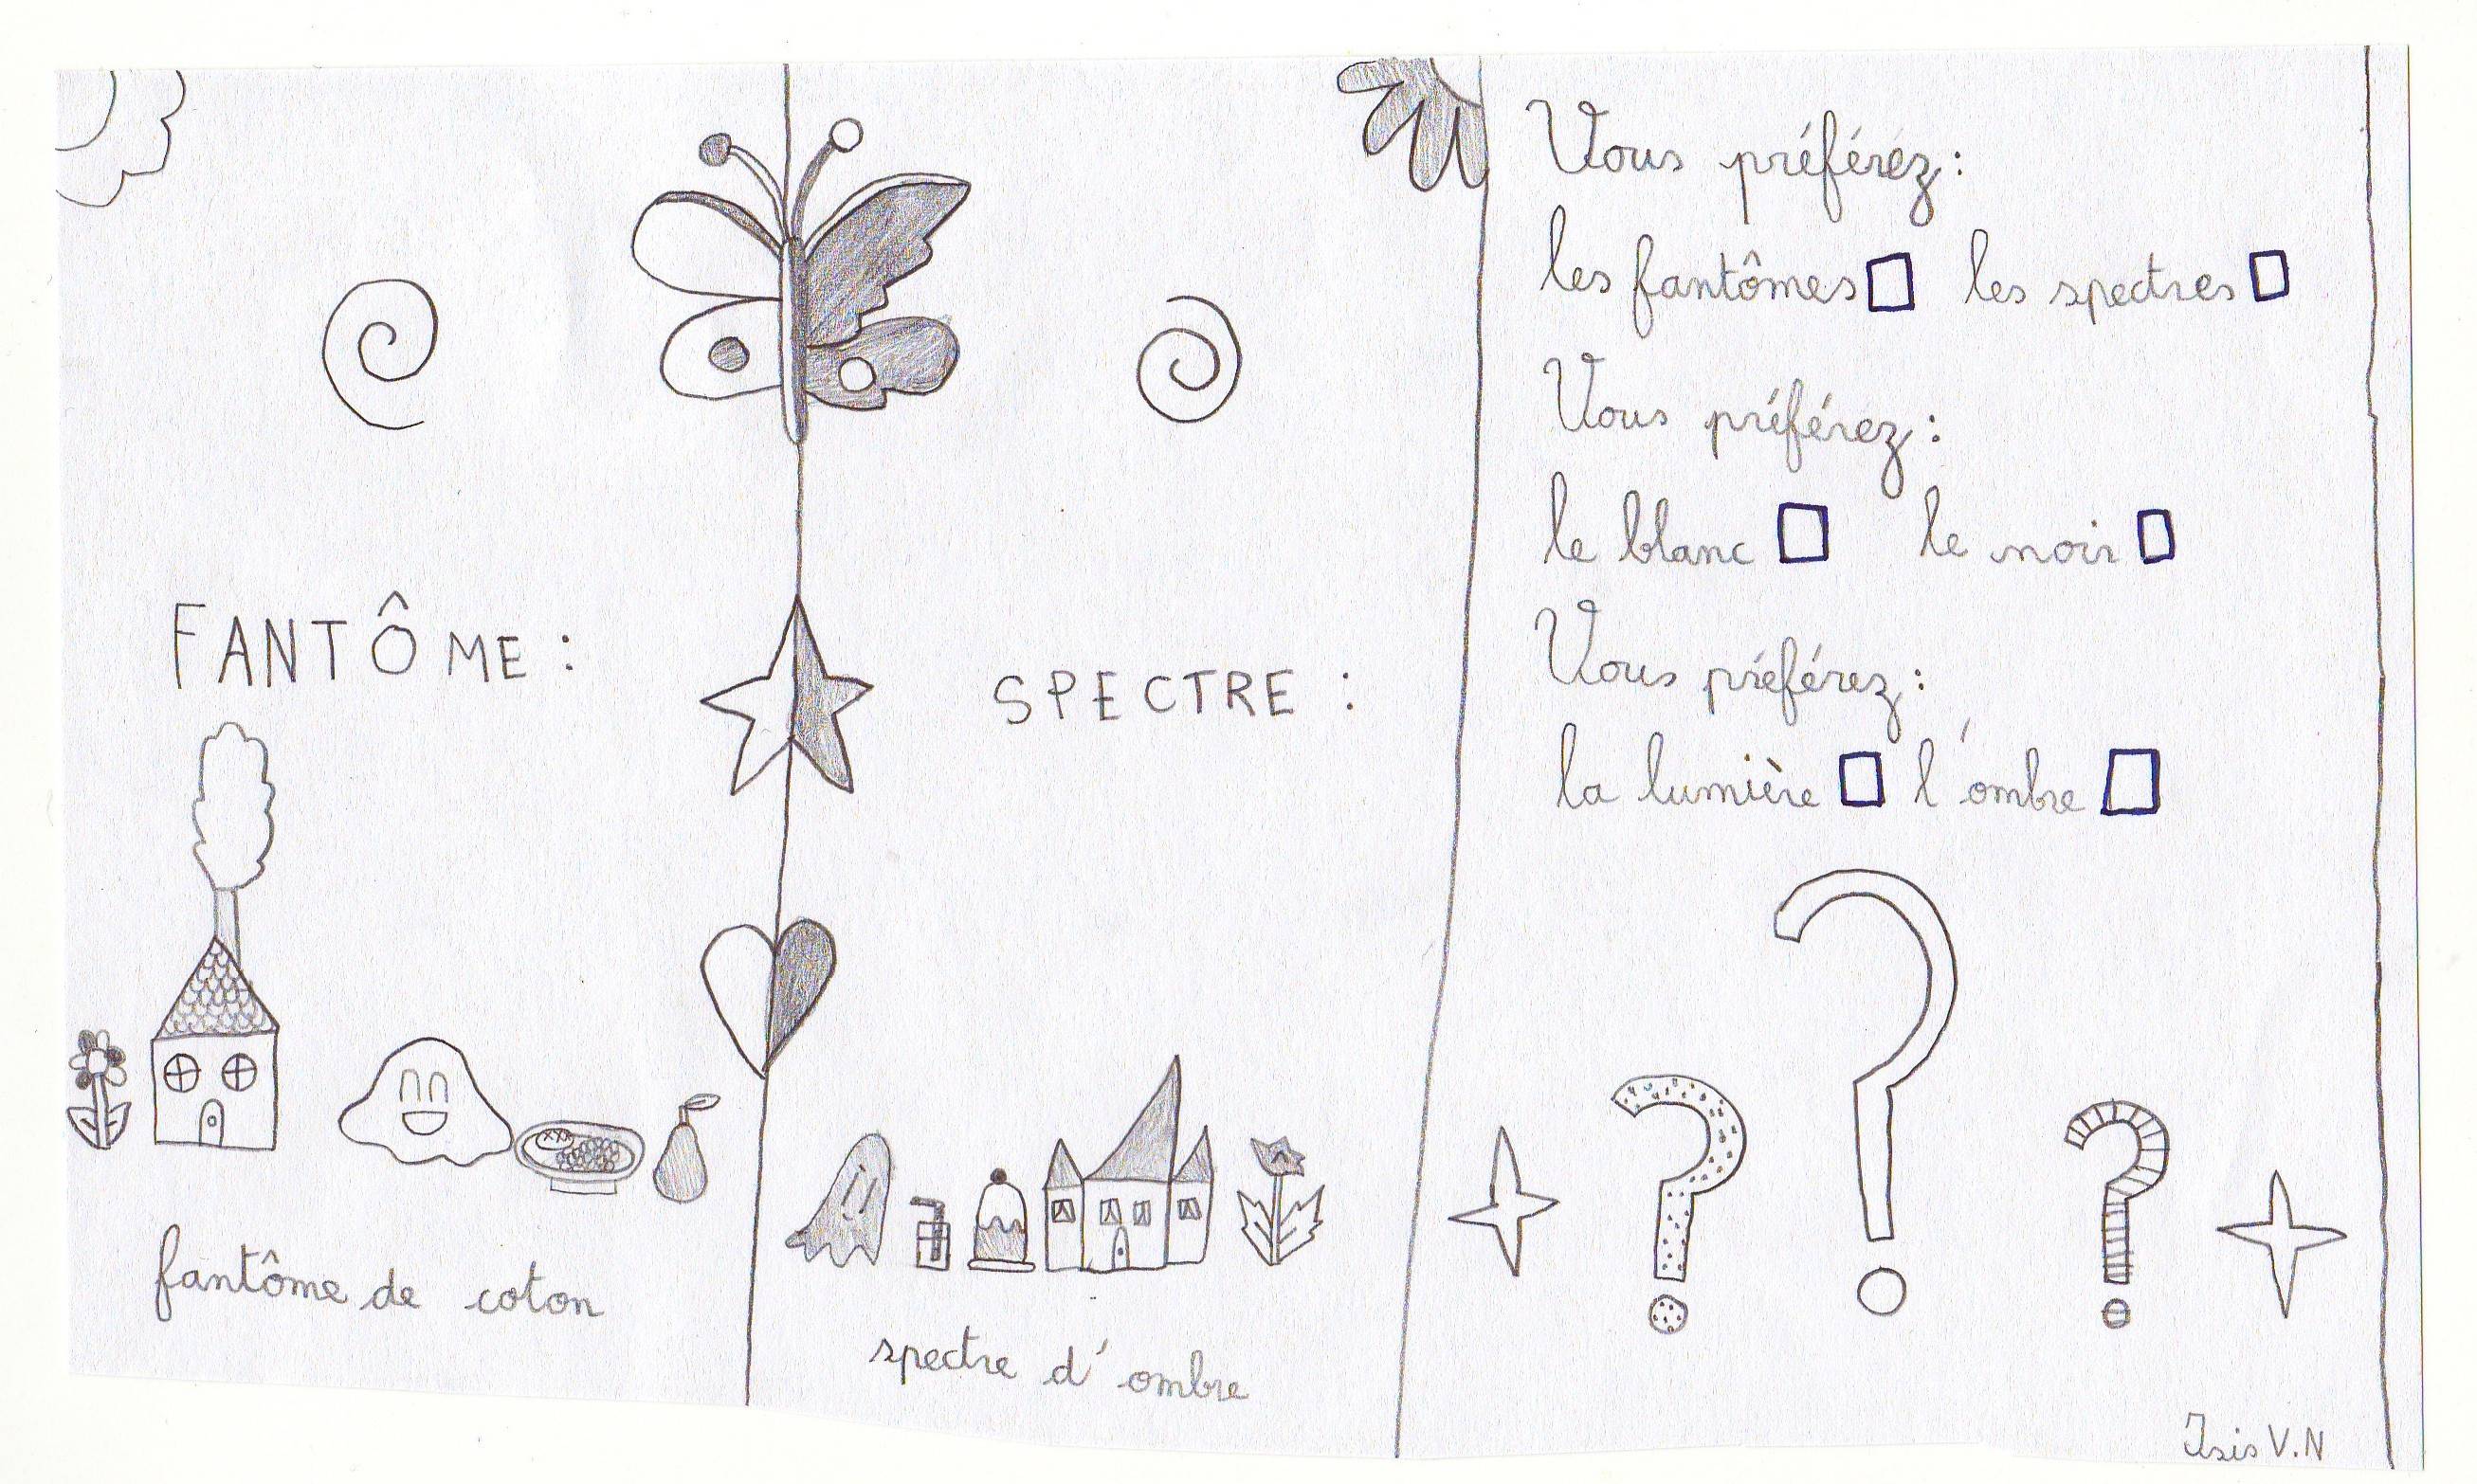 FANTÔME :
fantôme de coton
SPECTRE :
spectre d'ombre
Vous préférez :
les fantômes les spectres
Vous préférez :
le blanc le noir
Vous préférez :
la lumière l'ombre
Isis V.N